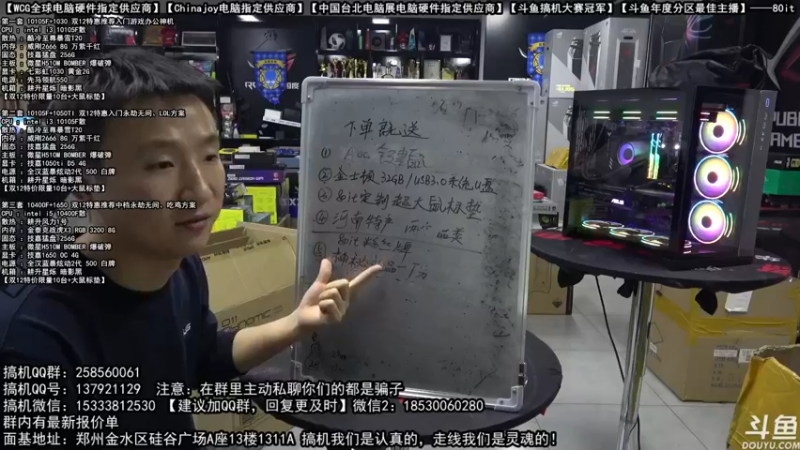 【WCG全球电脑硬件指定供应商】【Chinajoy电脑指定供应商】【中国台北电脑展电脑硬件指定供应商】【斗鱼搞机大赛冠军】【斗鱼年度分区最佳主播】——80it
第一套 10105F+1030 双12特惠推荐入门游戏办公神机
CPU : intel i3 10105F散
散热 : 酷冷至尊暴雪T20
内存 : 威刚2666 8G 万紫千红
固态 : 技嘉猛盘 256G
主板 : 微星H510M BOMBER 爆破弹
显卡 : 七彩虹1030 黄金2G
电源 : 先马领航550
机箱 : 耕升星烁 暗影黑
【双12特价限量10台+大鼠标垫】
第二套 10105F+1050TI 双12特惠入门永劫无间、LOL方案
CPU : intel i3 10105F散
散热 : 酷冷至尊暴雪T20
内存 : 威刚2666 8G 万紫千红
固态 : 技嘉猛盘 256G
主板 : 微星H510M BOMBER 爆破弹
显卡 : 技嘉1050ti D5 4G
电源 : 全汉蓝暴炫动2代 500 白牌
机箱 : 耕升星烁 暗影黑
【双12特价限量10台+大鼠标垫】
第三套 10400F+1650 双12特惠推荐中档永劫无间、吃鸡方案
CPU : intel i5 10400F散
散热 : 耕升风力1号
内存 : 金泰克战虎X3 RGB 3200 8G
固态 : 技嘉猛盘 256G
主板 : 微星H510M BOMBER 爆破弹
显卡 : 技嘉1650 OC 4G
电源 : 全汉蓝暴炫动2代 500 白牌
机箱 : 耕升星烁 暗影黑
【双12特价限量10台+大鼠标垫】
下单就送
② 金士顿32GB/USB3.0系统U盘
③ 品汇定制超大鼠标垫
④ 河南特产 两个品类
搞机QQ群：258560061
搞机QQ号：137921129 注意：在群里主动私聊你们的都是骗子
搞机微信：15333812530 【建议加QQ群，回复更及时】微信2：18530060280
群内有最新报价单
面基地址：郑州金水区硅谷广场A座13楼1311A 搞机我们是认真的，走线我们是灵魂的！
斗鱼
DOUYU.COM